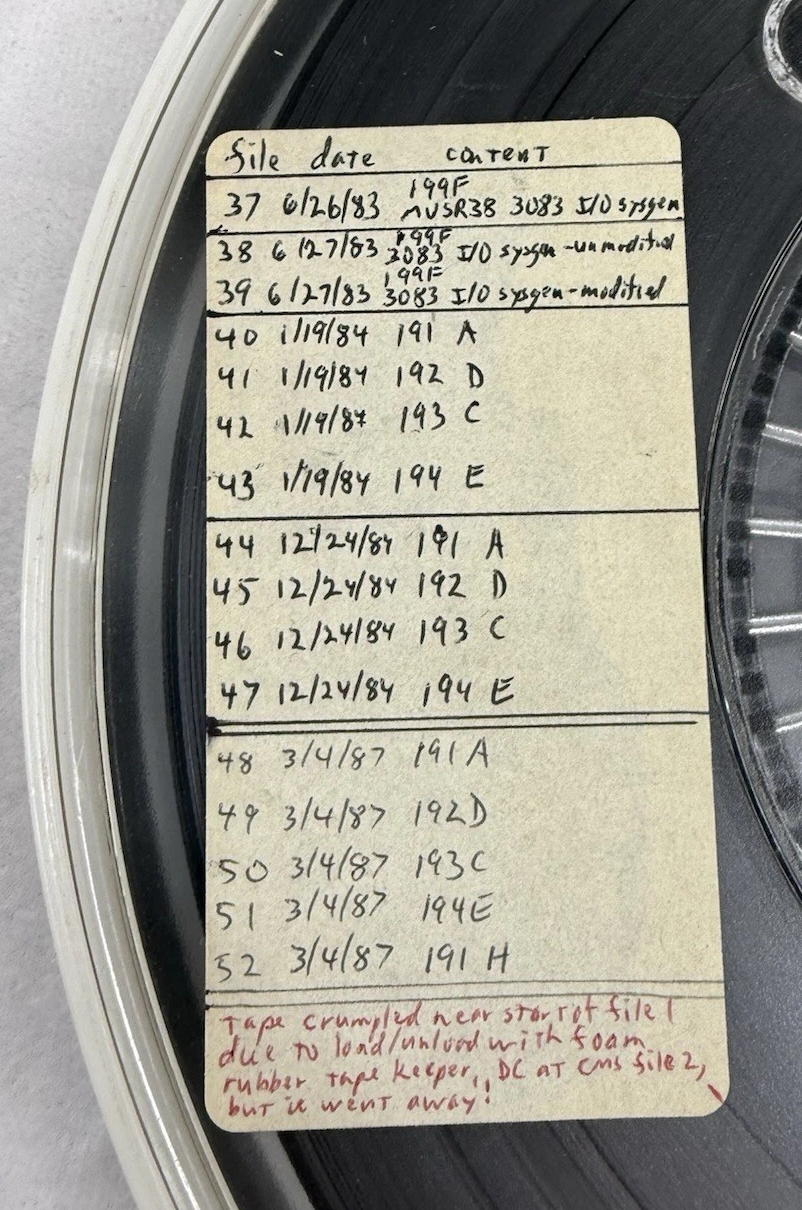 file date content
199F
37 6/26/83 MVSR38 3083 I/O sysgen
199F
38 6/27/83 3083 I/O sysgen-unmodified
199F
39 6/27/83 3083 I/O sysgen-modified
40 1/19/84 191 A
41 1/19/84 192 D
42 1/19/84 193 C
43 1/19/84 194 E
44 12/24/84 191 A
45 12/24/84 192 D
46 12/24/84 193 C
47 12/24/84 194 E
48 3/4/87 191 A
49 3/4/87 192D
50 3/4/87 193C
51 3/4/87 194E
52 3/4/87 191 H
Tape crumpled near start of file 1
due to load/unload with foam
rubber tape keeper, DC at CMS file 2,
but it went away!